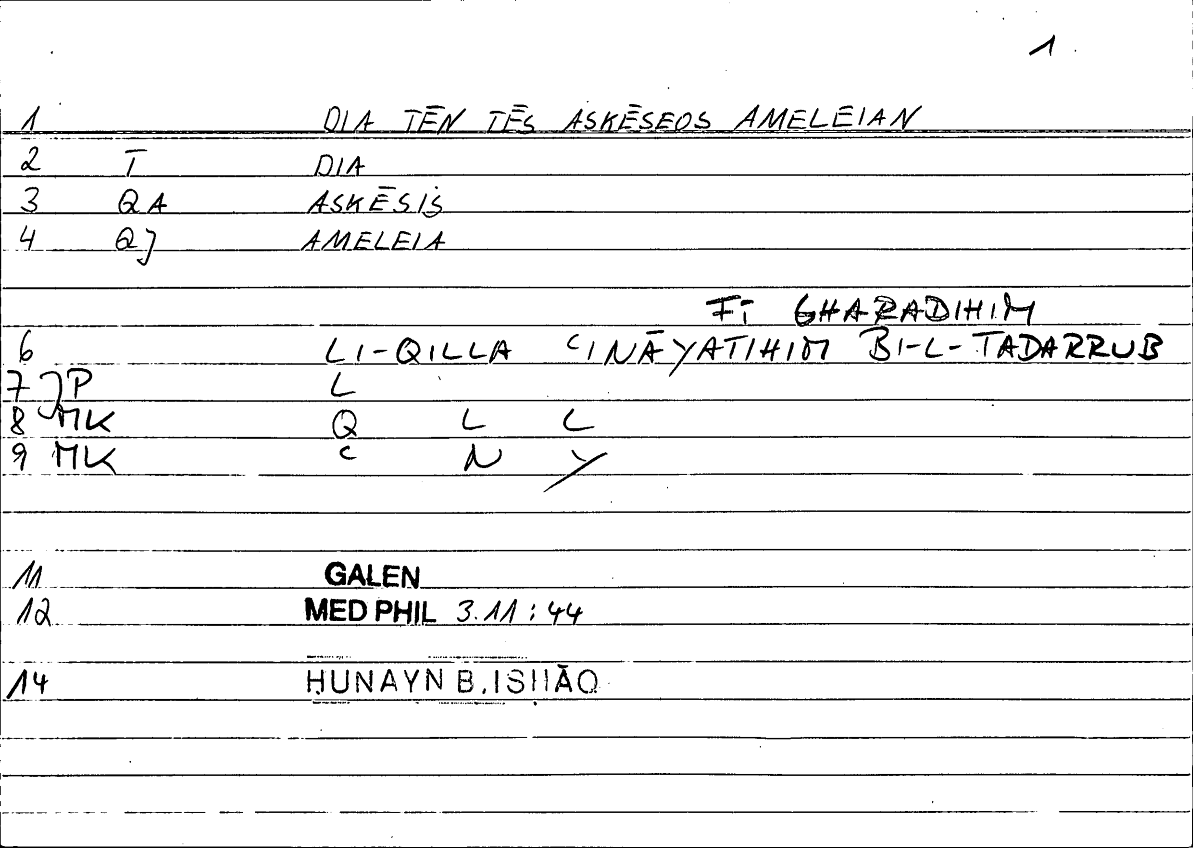 1
1 DIA TĒN TĒS ASKĒSEOS AMELEIAN
2 T DIA
3 QA ASKĒSIS
4 QJ AMELEIA
FĪ GHARADIHIM
6 LI-QILLA ʿINĀYATIHIM BI-L-TADARRUB
7 JP L
8 MK Q L L
9 MK ʿ N Y
11 GALEN
12 MED PHIL 3.11:44
14 ḤUNAYN B. ISḤĀQ